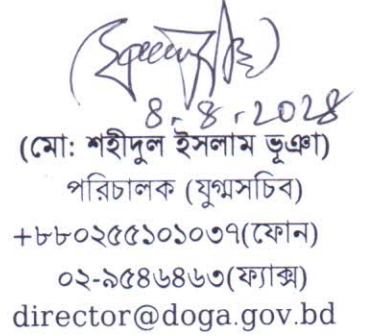 ৪.৪.২০২৪
(মো: শহীদুল ইসলাম ভূঞা)
পরিচালক (যুগ্মসচিব)
+৮৮০২৫৫১০১০৩৭(ফোন)
০২-৯৫৪৬৪৬৩(ফ্যাক্স)
director@doga.gov.bd